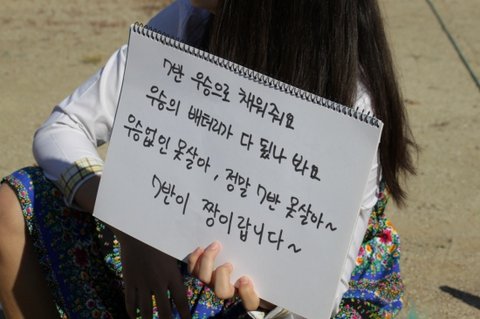 7반 우승으로 채워줘요
우승의 배터리가 다 됐나 봐요
우승없인 못살아, 정말 7반 못살아~
7반이 짱이랍니다~